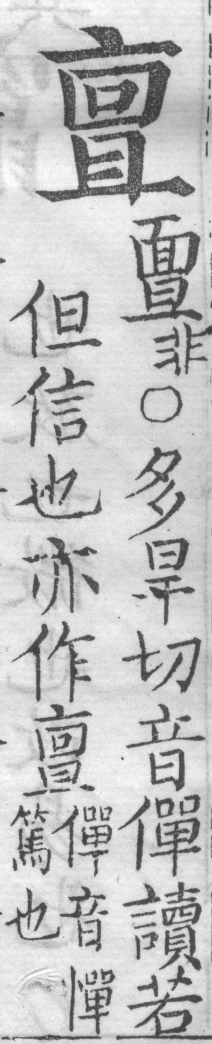 亶
𠶷非○多旱切音僤讀若
但信也亦作亶僤音憚
篤也